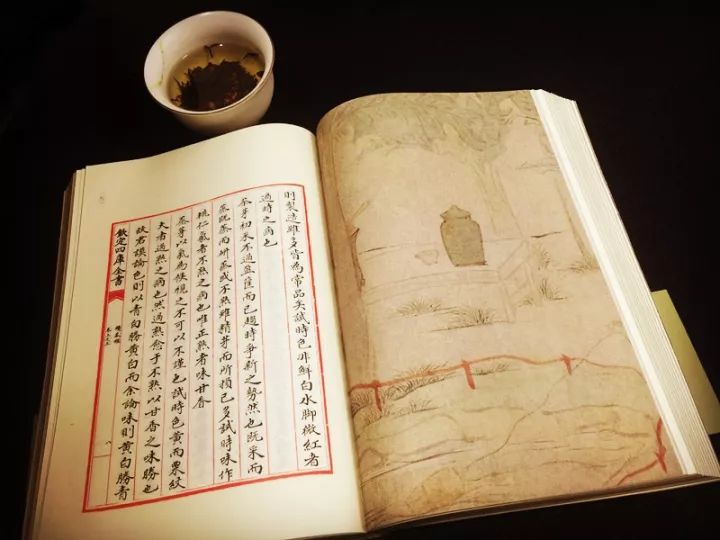 則製造雖多皆為常品矣試時色非鮮白水脚微紅者
過時之病也
茶芽初采不過盈筐而已趨時爭新之勢然也既采而
蒸既蒸而研蒸或不熟雖精芽而所損已多試時味作
桃仁氣者不熟之病也唯正熟者味甘香
茶芽以氣為候視之不可以不謹也試時色黄而粟紋
大者過熟之病也然過熟愈于不熟以甘香之味勝也
故君謨論色則以青白勝黄白而余論味則黄白勝青
欽定四庫全書